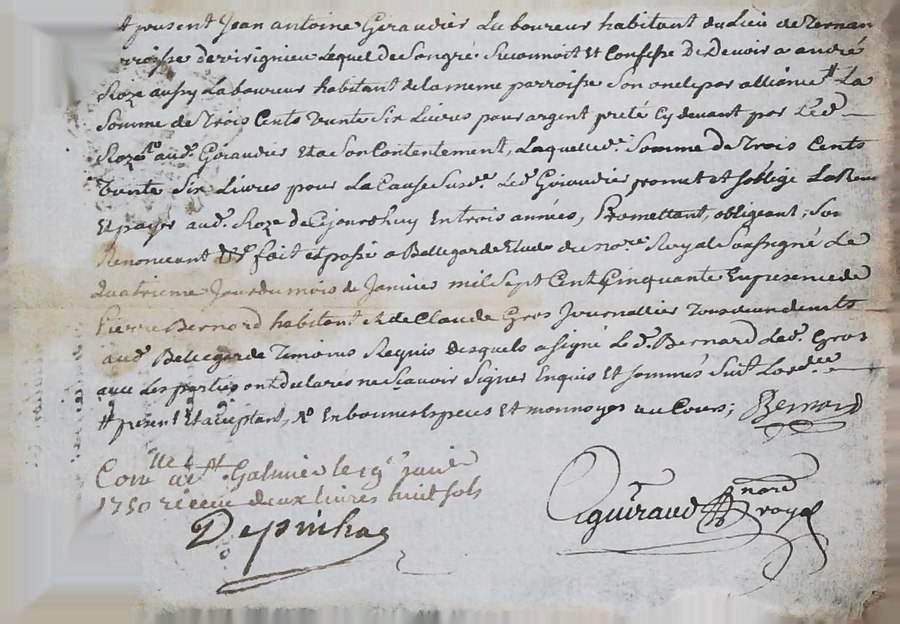 # present Jean antoine Geraudier Laboureur habitant du Lieu de Ternan
parroisse de virignieu Lequel de Son gré Reconnoit Et Confesse De Devoir a andré
Roze aussy Laboureur habitant de la meme parroisse Son oncle par alliance # La
Somme de Trois Cents Trente Six Livres pour argent preté Cy devant par Led.
Roze aud. Geraudier Et a Son Contentement, Laquelle d. Somme de Trois Cents
Trente Six Livres pour La Cause Susd. Led. Geraudier promet et soblige La
Et payer aud. Roze de Cejourdhuy En trois années, Promettant, obligeant, Sou
Renonceant &c. fait et passé a Bellegarde Etude du nore. Royal Soussigné Le
quatrieme Jour du mois de Janvier mil Sept Cent Cinquante En presence de
Pierre Bernard habitant & de Claude Gros Journallier Tous deux
aud. Bellegarde Temoins Requis desquels a signé Le d. Bernard Led. Gros
avec Les parties ont declarés ne Sçavoir Signer Enquis Et sommés Suiv. Lord.ce
# present Et aceptant, & En bonnes Especes Et monnoyes au Cours; Bernard
Con.lle a St Galmier le 19e janv.
1750 receu deux livres huit sols
Depinhac
Guiraud nore royal